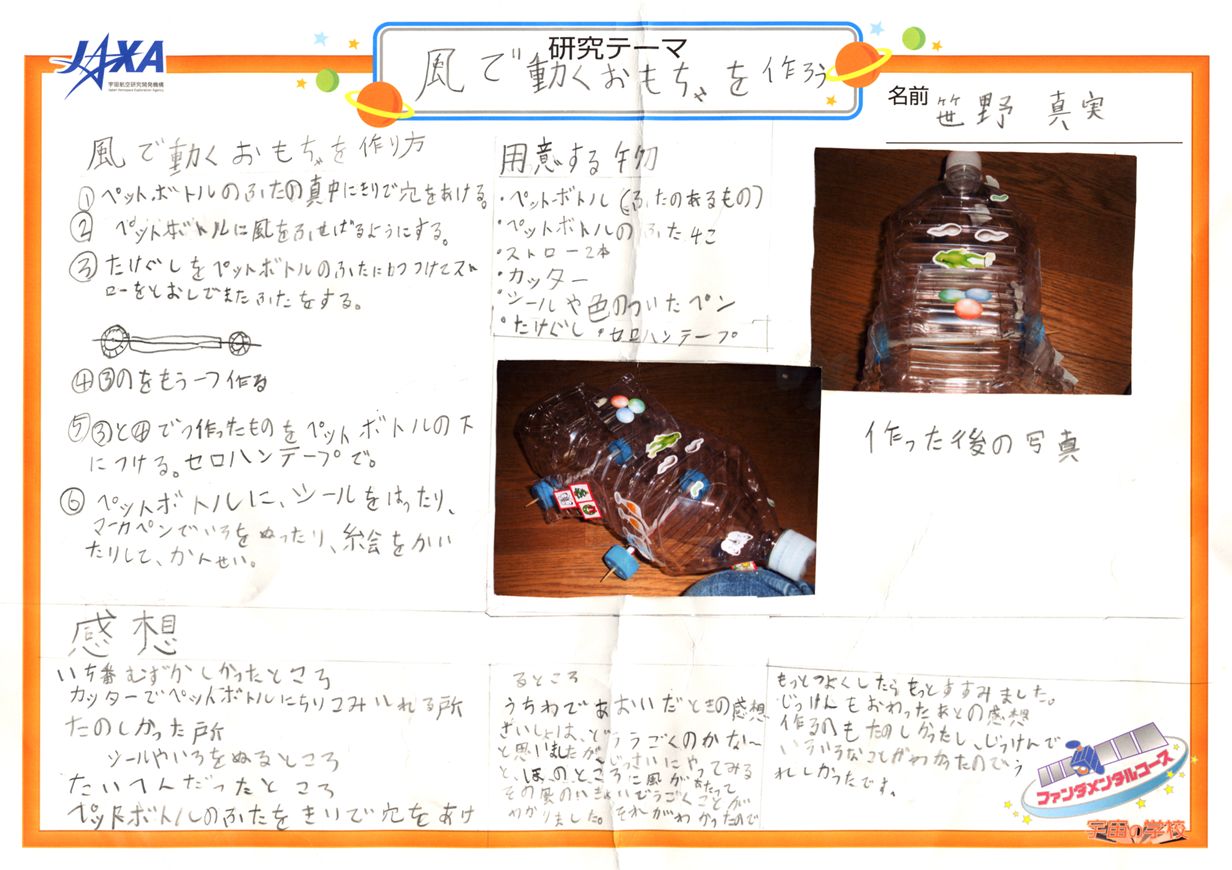 JAXA
宇宙航空研究開発機構
Japan Aerospace Exploration Agency
研究テーマ
風で動くおもちゃを作ろう
名前 笹野 真実
風で動くおもちゃを作り方
① ペットボトルのふたの真中にきりで穴をあける。
② ペットボトルに風をふせばるようにする。
③ たけぐしをペットボトルのふたに1つつけてスト
ローをとおしてまたふたをする。
④ ③のをもう一つ作る
⑤ ③と④でつ作ったものをペットボトルの下
につける。セロハンテープで。
⑥ ペットボトルに、シールをはったり、
マーカペンでいろをぬったり、絵をかい
たりして、かんせい。
用意する物
・ペットボトル(ふたのあるもの)
・ペットボトルのふた4こ
・ストロー2本
・カッター
・シールや色のついたペン
・たけぐし・セロハンテープ
作った後の写真
感想
いち番むずかしかったところ
カッターでペットボトルにきりこみいれる所
たのしかった所
シールやいろをぬるところ
たいへんだったところ
ペットボトルのふたをきりで穴をあけ
るところ
うちわであおいだときの感想
さいしょは、どううごくのかな〜
と思いましたが、じっさいにやってみる
と、ほのところに風があたって
その風のいきおいでうごくことが
わかりました。それがわかったので
もっとつよくしたらもっとすすみました。
じっけんもおわったあとの感想
作るのもたのしかったし、じっけんで
いろいろなことがわかったのでう
れしかったです。
ファンダメンタルコース
宇宙の学校